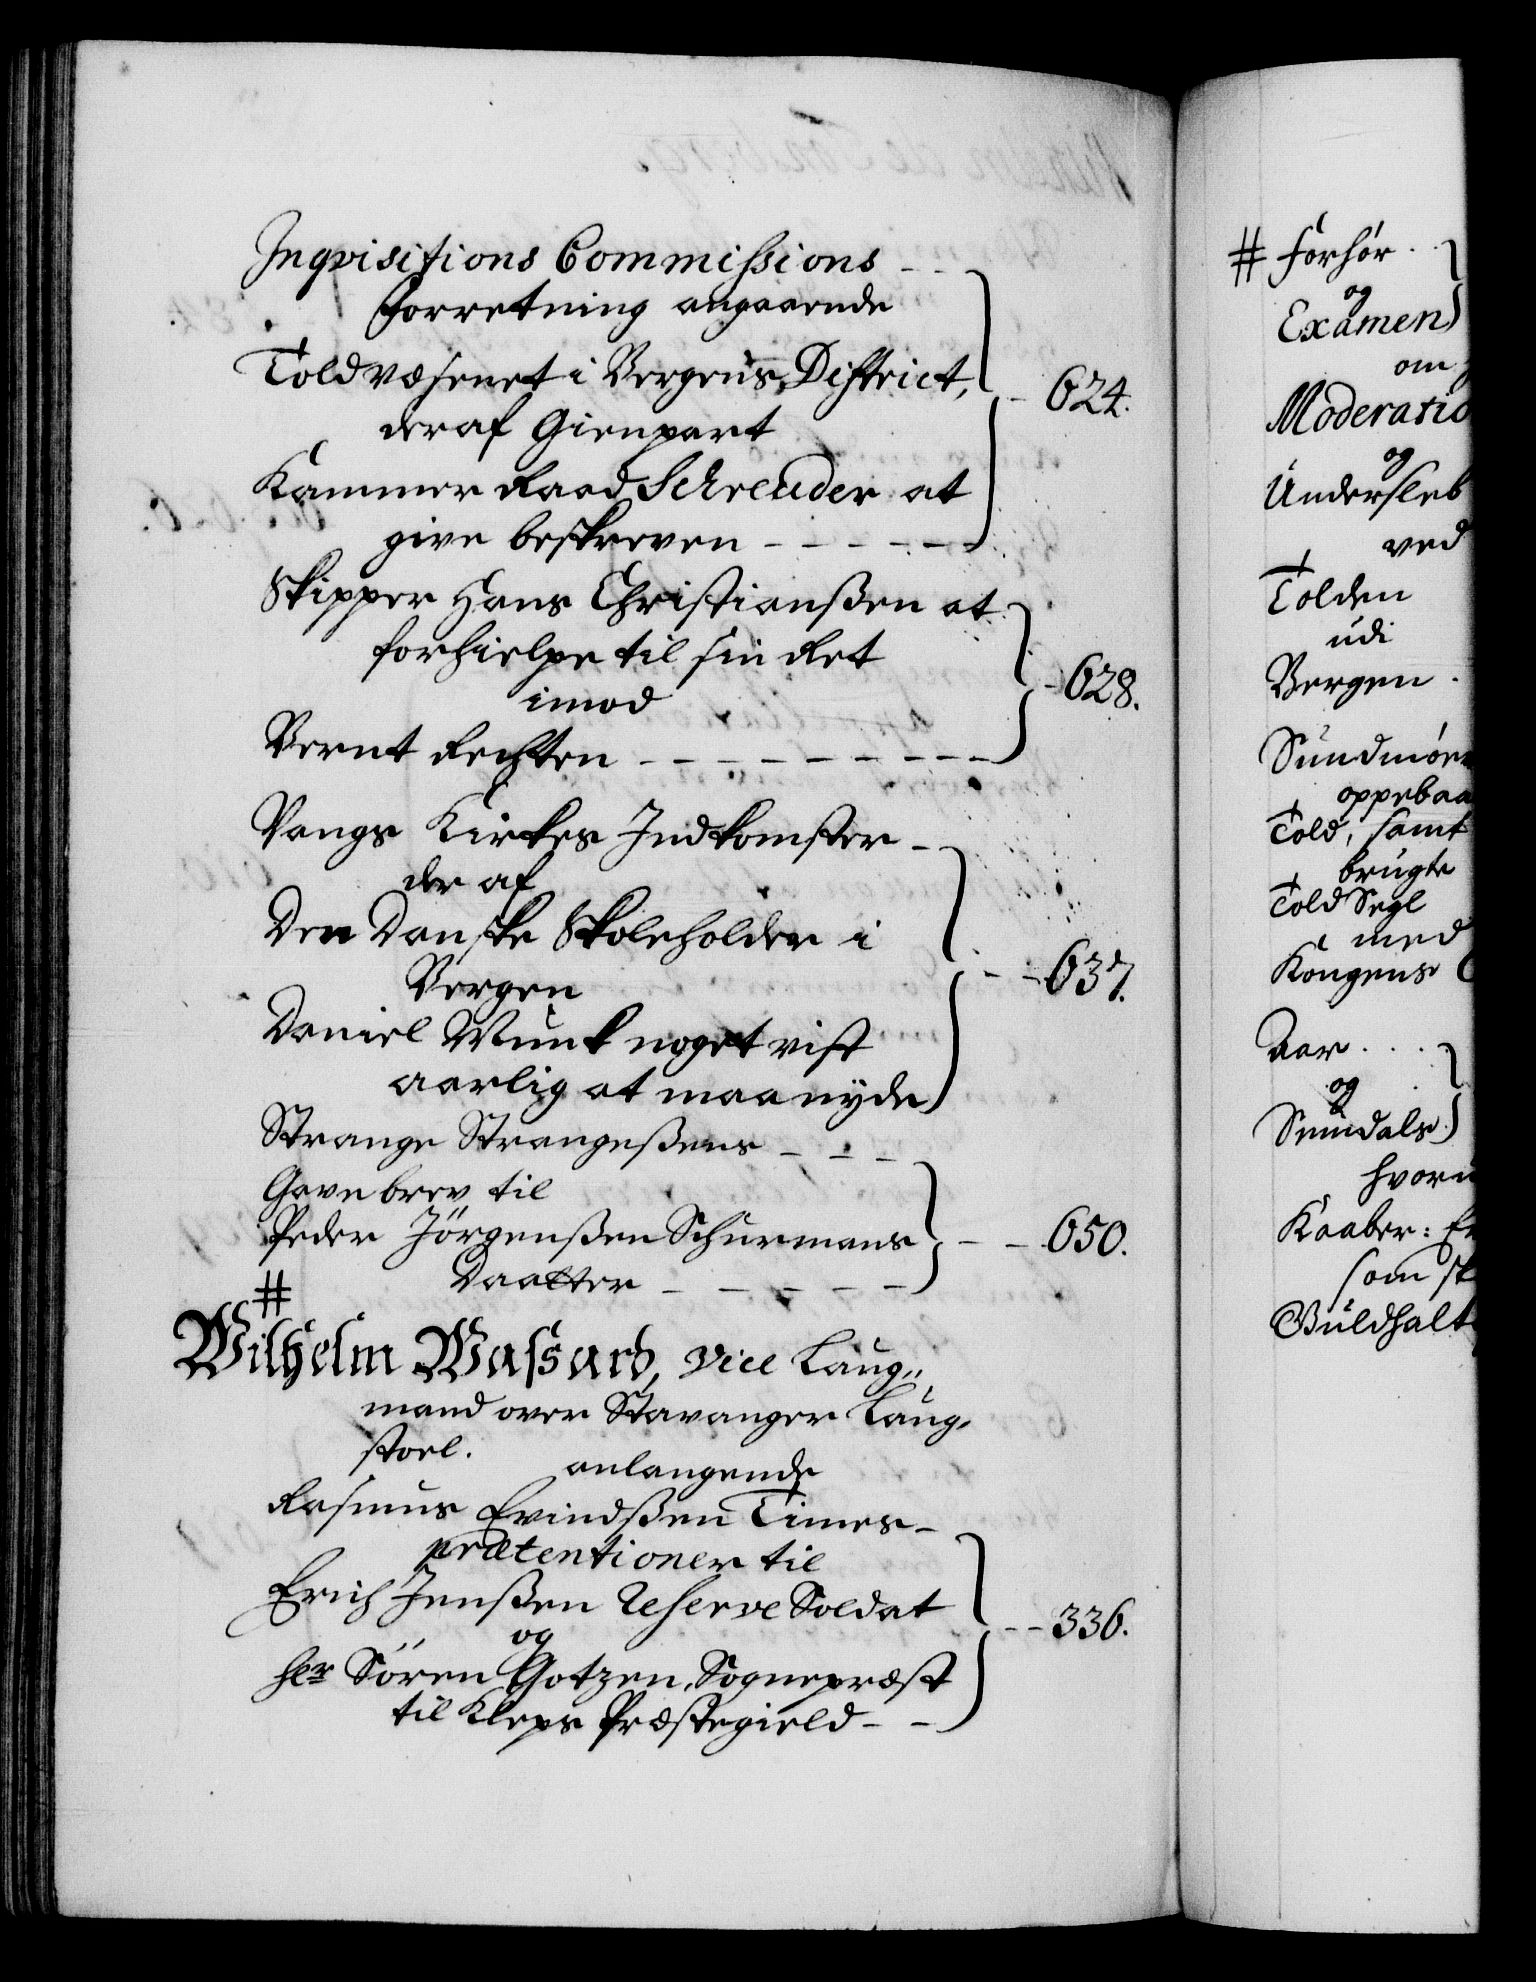 Inqvisitions Commissions - -
forretning angaaende
Toldvæsenet i Bergens District,
deraf Gienpart
Kammer Raad Schreuder at
give beskreven - - - - - - 624.
Skipper Hans Christianßen at
forhielpe til sin Ret
imod
Bernt Rechten - - - - - - - - - 628.
Vangs Kirkes Indkomster -
der af
Den Danske Skoleholder i
Bergen
Daniel Munk noget vist
aarlig at maa nyde - - 637.
Strange Strangeßens - - -
Gavebrev til
Peder Jörgenßen Schurmans
Daatter - - - - - - - 650.
#
Wilhelm Massard, Vice Laug„
mand over Stavanger Laug„
stoel.
anlangende
Rasmus Evindßen Times -
prætentioner til
Erich Jenßen Reserve Soldat
og
Hr Sören Gotzen, Sognepræst
til Kleps Præstegield - - 336.
# Forhør
og
Examen
om
Moderatio
og
Undersleb
ved
Tolden
udi
Bergen
Sundmör
oppebaa
Told, samt
brugte
Told Segl
med
Kongens
Aar
og
hvor
Kaaber: Er
som sk
Guldhalt